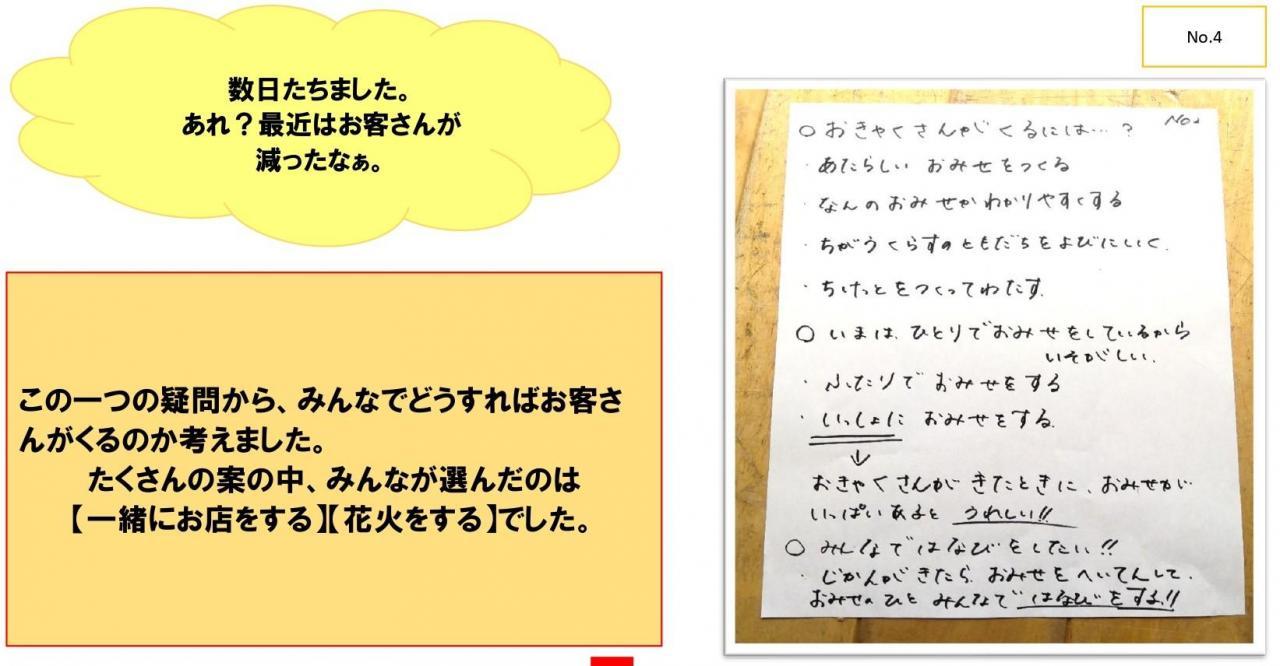 数日たちました。
あれ？最近はお客さんが
減ったなぁ。
この一つの疑問から、みんなでどうすればお客さ
んがくるのか考えました。
たくさんの案の中、みんなが選んだのは
【一緒にお店をする】【花火をする】でした。
No.4
○ おきゃくさんがくるには…？
・あたらしい おみせをつくる
・なんのおみせかわかりやすくする
・ちがうくらすのともだちをよびにいく.
・ちけっとをつくってわたす.
○ いまは、ひとりでおみせをしているから
いそがしい.
・ふたりで おみせをする
・いっしょに おみせをする.
↓
おきゃくさんが きたときに、おみせが
いっぱいあると うれしい!!
○ みんなではなびをしたい!!
・じかんがきたら、おみせをへいてんして、
おみせのひと みんなで はなびをする!!